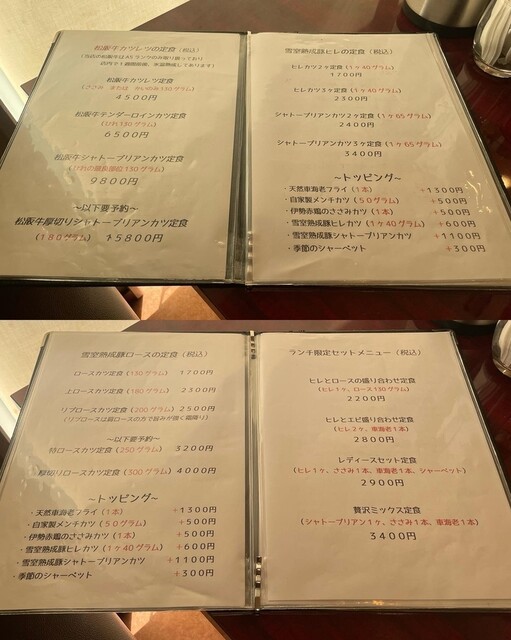 松阪牛カツレツの定食（税込）
松阪牛カツレツ定食
4500円
松阪牛テンダーロインカツ定食
（ひれ130グラム）
6500円
松阪牛シャトーブリアンカツ定食
9800円
～以下要予約～
松阪牛厚切りシャトーブリアンカツ定食
（180グラム） 15800円
雪室熟成豚ヒレの定食（税込）
ヒレカツ2ヶ定食（1ヶ40グラム）
1700円
ヒレカツ3ヶ定食（1ヶ40グラム）
2300円
シャトーブリアンカツ2ヶ定食（1ヶ65グラム）
2400円
シャトーブリアンカツ3ヶ定食（1ヶ65グラム）
3400円
～トッピング～
・天然車海老フライ（1本） +1300円
・自家製メンチカツ（50グラム） +500円
・伊勢赤鶏のささみカツ（1本） +500円
・雪室熟成豚ヒレカツ（1ヶ40グラム） +600円
・雪室熟成豚シャトーブリアンカツ +1100円
・季節のシャーベット +300円
雪室熟成豚ロースの定食（税込）
ロースカツ定食（130グラム） 1700円
上ロースカツ定食（180グラム） 2300円
リブロースカツ定食（200グラム）2500円
（リブロースは肩ロースの方で旨みが強く霜降り）
～以下要予約～
特ロースカツ定食（250グラム） 3200円
厚切りロースカツ定食（300グラム） 4000円
～トッピング～
・天然車海老フライ（1本） +1300円
・自家製メンチカツ（50グラム） +500円
・伊勢赤鶏のささみカツ（1本） +500円
・雪室熟成豚ヒレカツ（1ヶ40グラム） +600円
・雪室熟成豚シャトーブリアンカツ +1100円
・季節のシャーベット +300円
ランチ限定セットメニュー（税込）
ヒレとロースの盛り合わせ定食
（ヒレ1ヶ、ロース130グラム）
2200円
ヒレとエビ盛り合わせ定食
（ヒレ2ヶ、車海老1本）
2800円
レディースセット定食
（ヒレ1ヶ、ささみ1本、車海老1本、シャーベット）
2900円
贅沢ミックス定食
（シャトーブリアン1ヶ、ささみ1本、車海老1本）
3400円